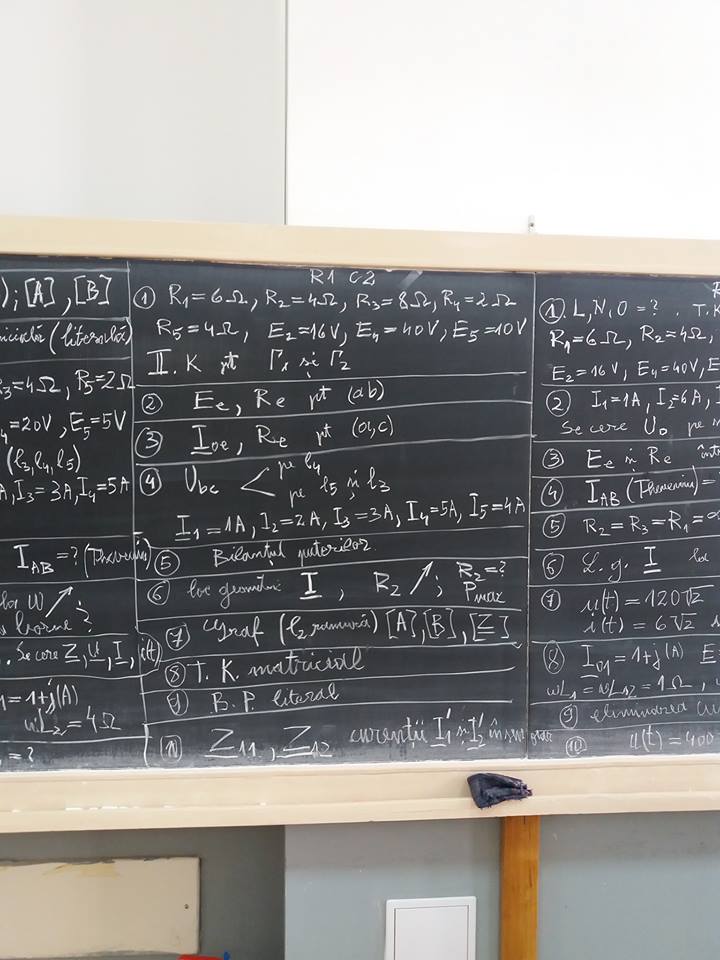 ); [A], [B]
(literală)
R3=4Ω, R5=2Ω
=20V, E5=5V
(l3, l4, l5)
A, I3=3A, I4=5A
IAB=? (Thevenin)
la W
borne?
. Se cere Z, U, I, i(t)
=1+j(A)
wL2=4Ω
=?
R1 C2
① R1=6Ω, R2=4Ω, R3=8Ω, R4=2Ω
R5=4Ω, E2=16V, E4=40V, E5=10V
II. K pt Γ1 și Γ2
② Ee, Re pt (ab)
③ Ioe, Re pt (a,c)
④ Ubc < pe l4
pe l5 și l3
I1=1A, I2=2A, I3=3A, I4=5A, I5=4A
⑤ Bilanțul puterilor
⑥ loc geometric I, R2 ↗; R2=?
Pmax
⑦ Graf (l2 ramură) [A], [B], [Z]
⑧ T. K. matricial
⑨ B. P. literal
⑩ Z11, Z12 curenții I1' și I2'
①. L, N, O =? . T.K
R1=6Ω, R2=4Ω,
E2=16V, E4=40V, E
② I1=1A, I2=6A, I
Se cere U0 pe
③ Ee și Re într
④ IAB (Thevenin) =
⑤ R2=R3=R1=∞
⑥ L.g. I la
⑦ u(t)=120√2
i(t)=6√2
⑧ I01=1+j(A) E
wL1=wL12=1Ω,
⑨ eliminarea cu
⑩ u(t)=400